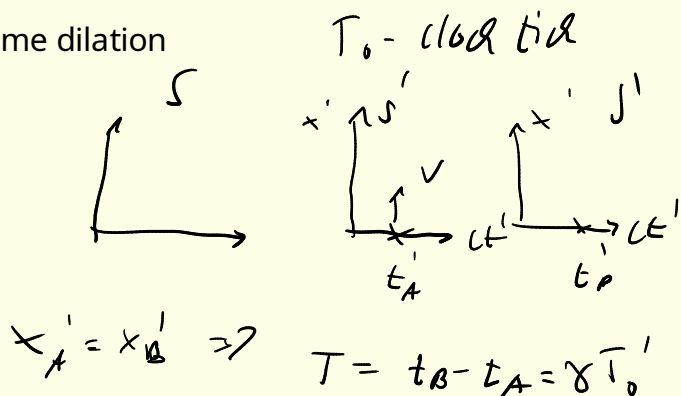 me dilation
T₀ - clock tick
S
x' S'
x' S'
V
ct'
ct'
t'_A
t'_B
x_A' = x_B' =>
T = t_B - t_A = γT₀'